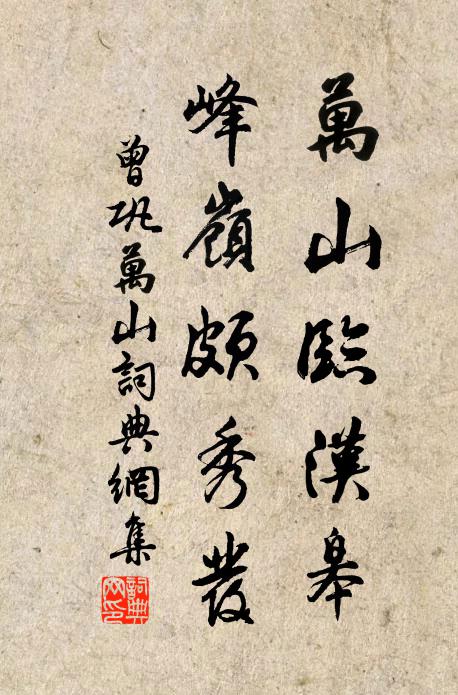 萬山臨漢皋
峰嶺頗秀發
曾巩萬山詞典網集
詞典
网印